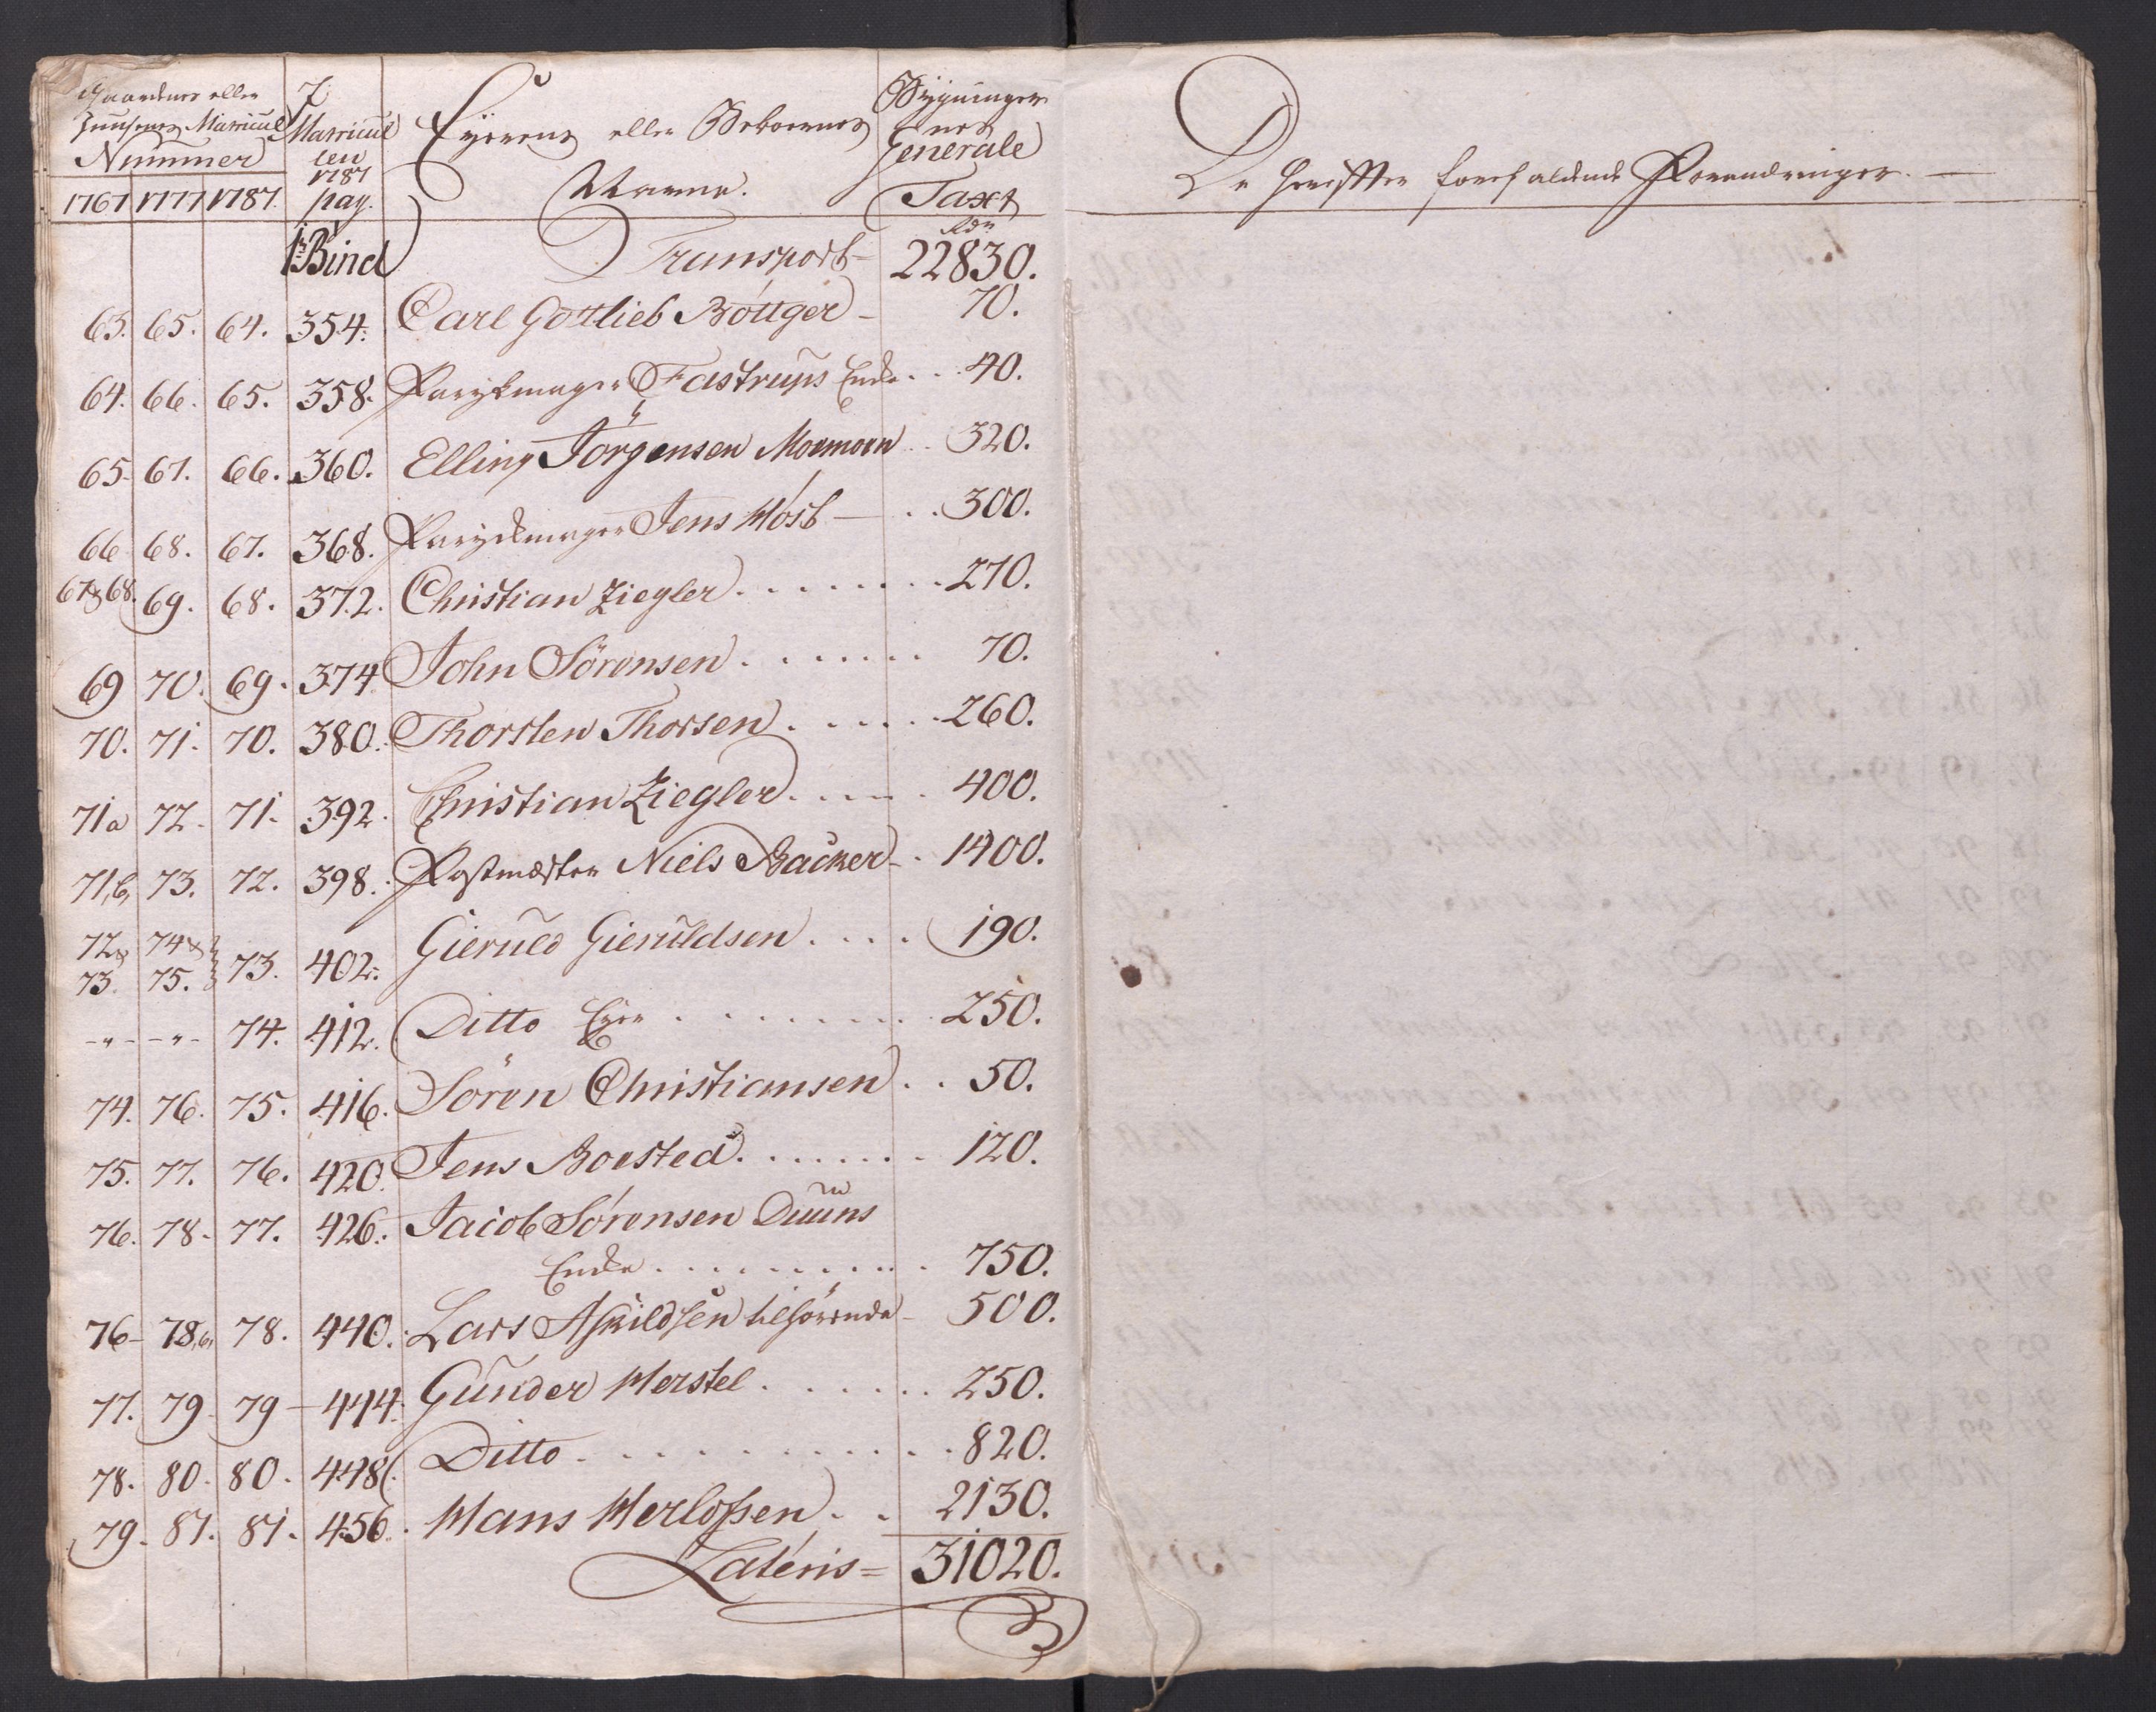 Gaardenes eller
Huusenes Matricul
Nummer
1767 1777 1787.
7
Matricul
len
1787
pag.
Eyerens eller Beboernes
Navne.
Bygninger
nes
Generale
Taxt
Rdr
De herefter forefaldende Forandringer. —
1ste Bind Transport - 22830.
63. 65. 64. 354. Carl Gottlieb Böttger - 70.
64. 66. 65. 358. Parykmager Fastrups Enke . . 40.
65. 67. 66. 360. Elling Jörgensen Moemoen . . 320.
66 68. 67. 368. Paryckmager Jens Höst — . . 300.
67 & 68. 69. 68. 372. Christian Ziegler . . . . . . . 270.
69 70. 69. 374 John Sörensen . . . . . . . 70.
70. 71. 70. 380. Thorsten Thorsen . . . . . . 260.
71a 72. 71. 392. Christian Ziegler . . . . . 400.
71,b, 73. 72. 398. Postmæster Niels Backer - . 1400.
72 & 73. 74 & 75. 73. 402. Gieruld Gieruldsen . . . . 190.
- " - - " - 74. 412. Ditto Eyer . . . . . . . . . 250.
74. 76. 75. 416. Sören Christiansen . . 50.
75. 77. 76. 420. Jens Boested . . . . . . . 120.
76. 78. 77. 426. Jacob Sörensen Duuns
Enke . . . . . . . . . . 750.
76 - 78,b, 78. 440. Lars Askildsen tilhörende - 500.
77. 79. 79 - 444. Gunder Herstel . . . . . . . 250.
78. 80. 80. 448. Ditto . . . . . . . . . . . . 820.
79. 81. 81. 456. Hans Herlofsen . . 2130.
Lateris = 31020.